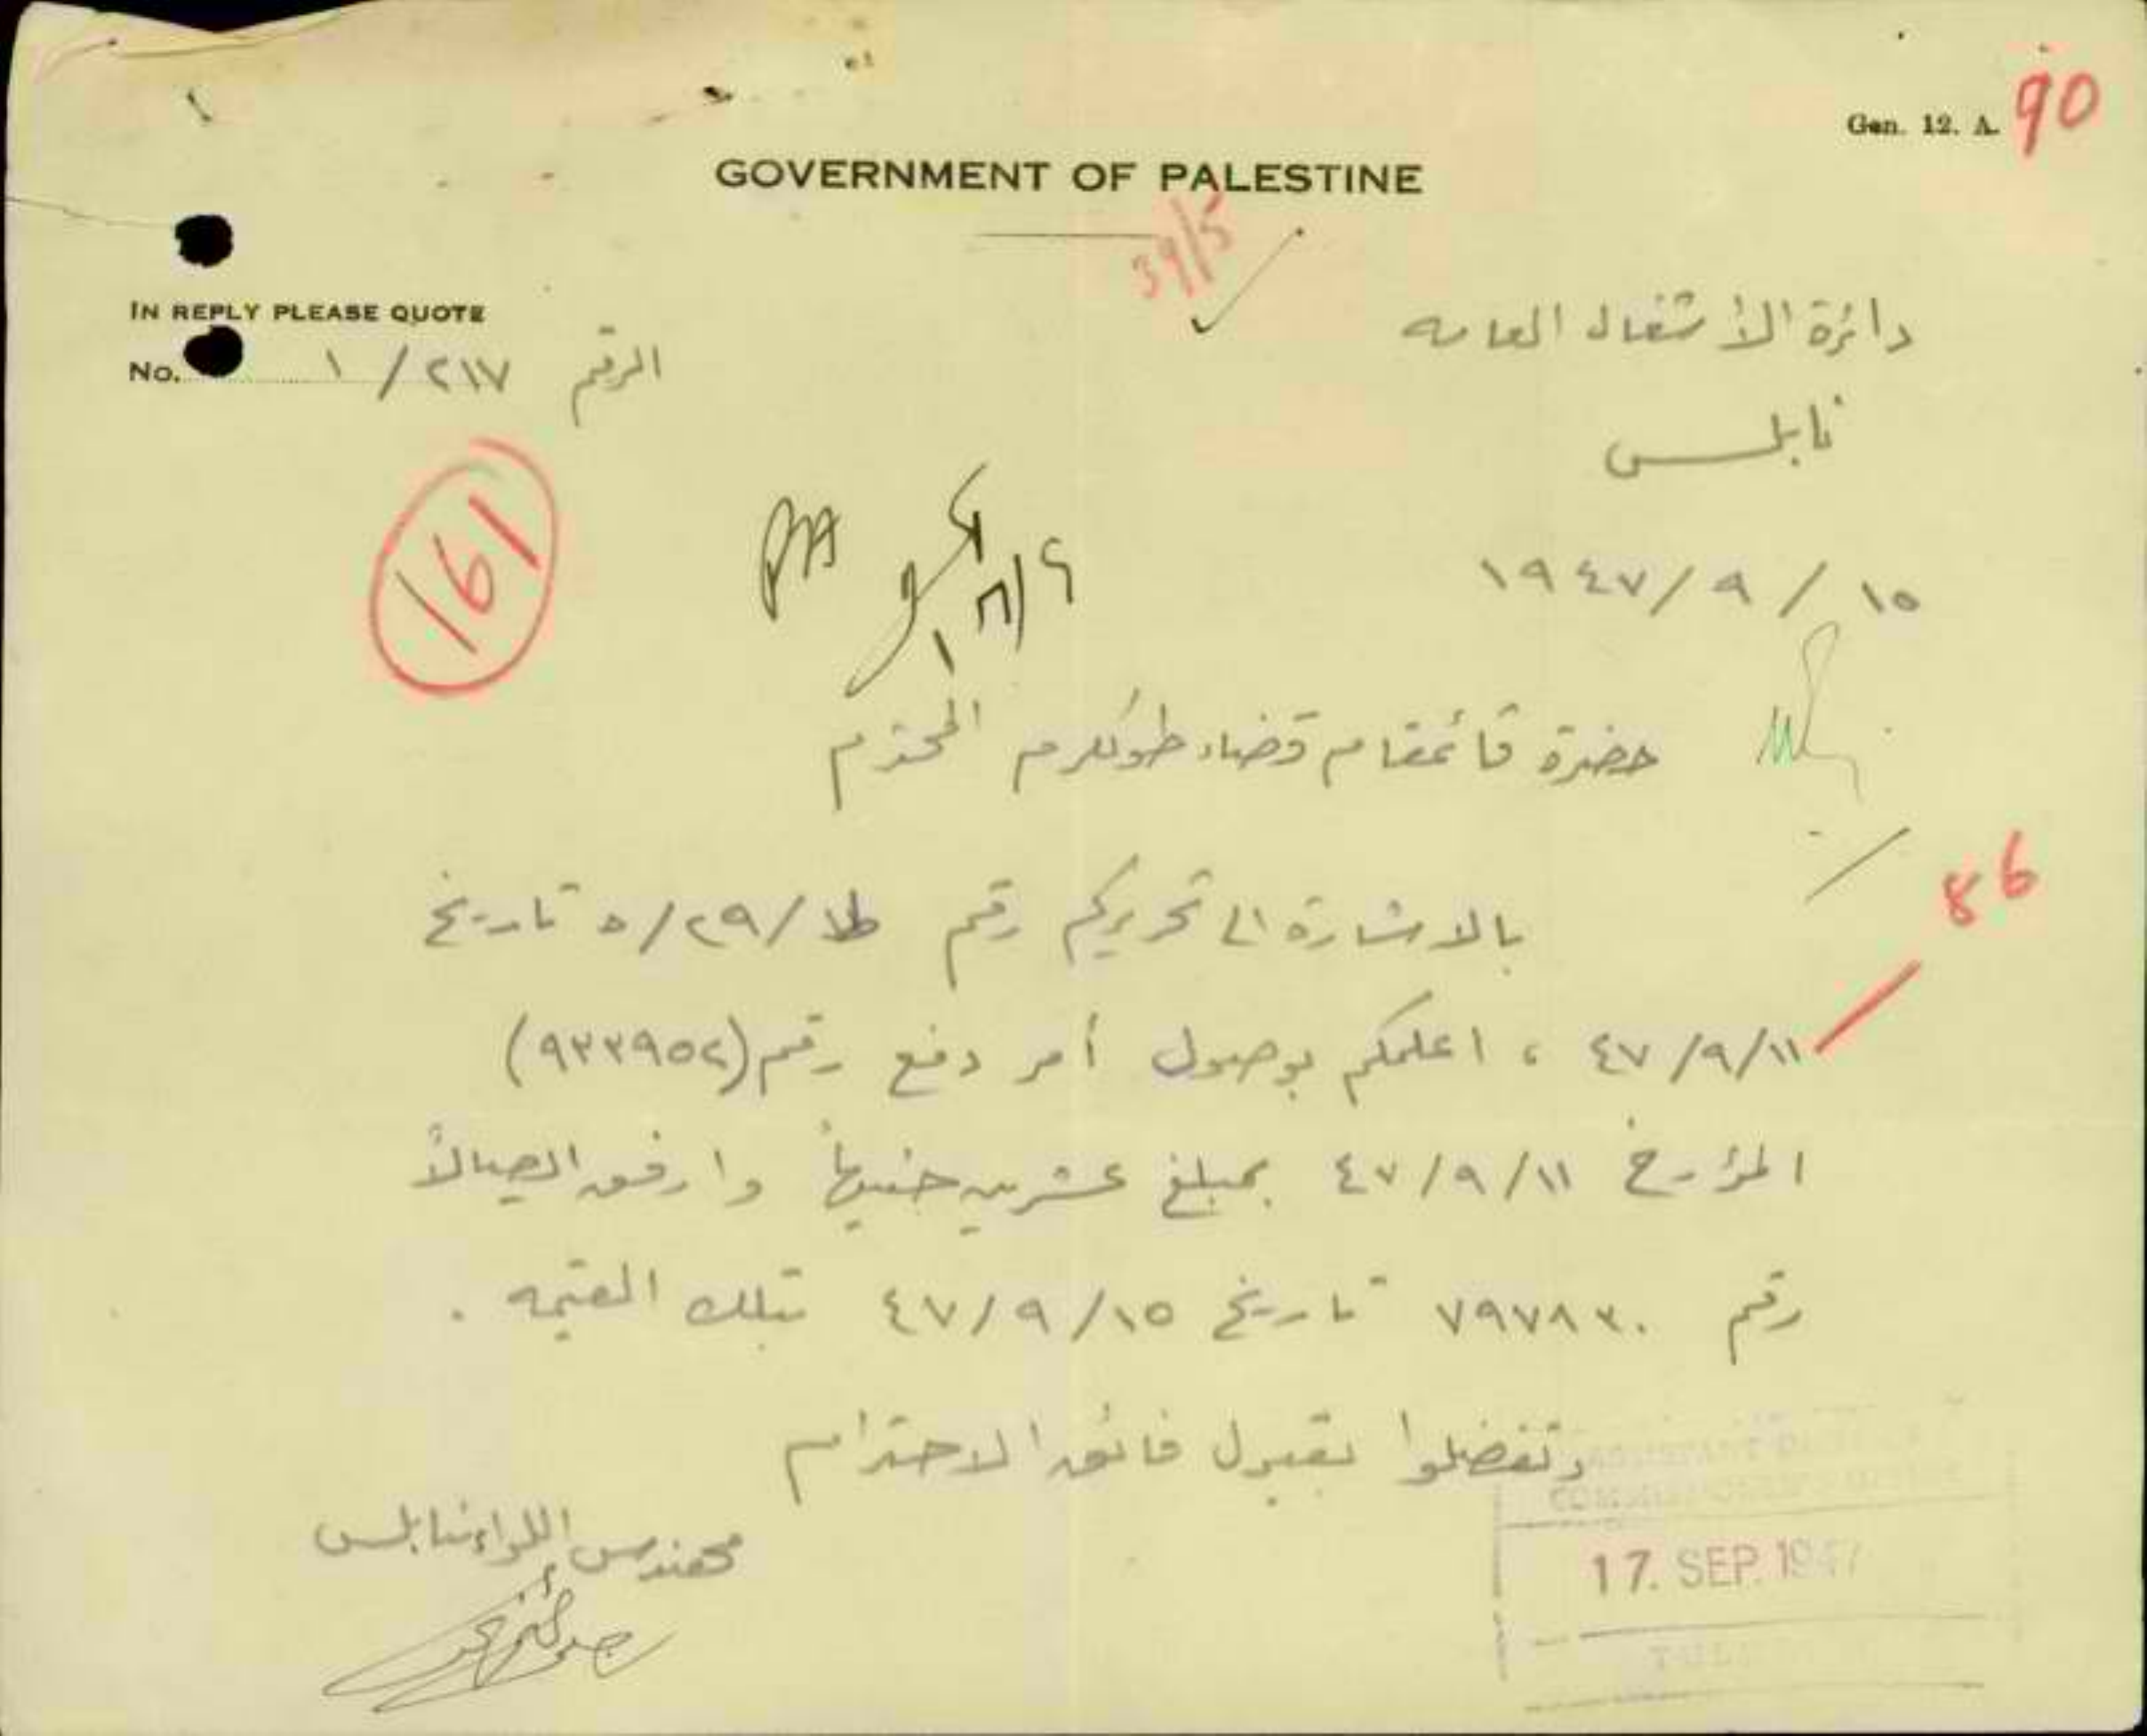 Gen. 12. A. 90
GOVERNMENT OF PALESTINE
39/5
IN REPLY PLEASE QUOTE
No. ١/٢١٧ الرقم
دائرة الأشغال العامه
نابلس
161
١٩٤٧/٩/١٥
حضرة قائمقام قضاء طولكرم المحترم
86
بالاشارة الى تحريركم رقم طا/٢٩/٥ تاريخ
٤٧/٩/١١ ، اعلمكم بوصول أمر دفع رقم (٩٣٣٩٥٢)
المؤرخ ٤٧/٩/١١ بمبلغ عشرين جنيهاً وارفق ايصالاً
رقم ٧٩٧٨٣٠ تاريخ ٤٧/٩/١٥ بتلك القيمه .
وتفضلوا بقبول فائق الاحترام
مهندس اللواء نابلس
COMMISSIONER'S OFFICE
17. SEP. 1947